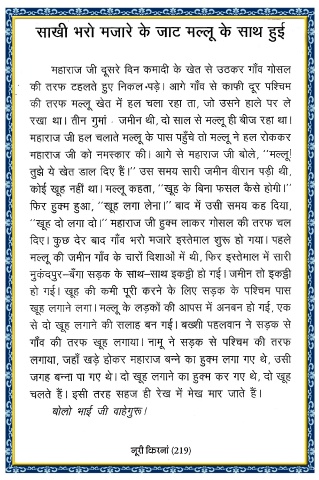 साखी भरो मजारे के जाट मल्लू के साथ हुई
महाराज जी दूसरे दिन कमादी के खेत से उठकर गाँव गोसल
की तरफ टहलते हुए निकल-पड़े। आगे गाँव से काफी दूर पश्चिम
की तरफ मल्लू खेत में हल चला रहा ता, जो उसने हाले पर ले
रखा था। तीन गुमां · जमीन थी, दो साल से मल्लू ही बीज रहा था।
महाराज जी हल चलाते मल्लू के पास पहुँचे तो मल्लू ने हल रोककर
महाराज जी को नमस्कार की। आगे से महाराज जी बोले, ‘‘मल्लू!
तुझे ये खेत डाल दिए हैं।’’ उस समय सारी जमीन वीरान पड़ी थी,
कोई खूह नहीं था। मल्लू कहता, ‘‘खूह के बिना फसल कैसे होगी।’’
फिर हुक्म हुआ, ‘‘खूह लगा लेना।’’ बाद में उसी समय कह दिया,
‘‘खूह दो लगा दो।’’ महाराज जी हुक्म लाकर गोसल की तरफ चल
दिए। कुछ देर बाद गाँव भरो मजारे इस्तेमाल शुरू हो गया। पहले
मल्लू की जमीन गाँव के चारों दिशाओं में थी, फिर इस्तेमाल में सारी
मुकंदपुर–बँगा सड़क के साथ-साथ इकट्ठी हो गई। जमीन तो इकट्ठी
हो गई। खूह की कमी पूरी करने के लिए सड़क के पश्चिम पास
खूह लगाने लगा। मल्लू के लड़कों की आपस में अनबन हो गई, एक
से दो खूह लगाने की सलाह बन गई। बख्शी पहलवान ने सड़क से
गाँव की तरफ खूह लगाया। नामू ने सड़क से पश्चिम की तरफ
लगाया, जहाँ खड़े होकर महाराज बन्ने का हुक्म लगा गए थे, उसी
जगह बन्ना पा गए थे। दो खूह लगाने का हुक्म कर गए थे, दो खूह
चलते हैं। इसी तरह सहज ही रेख में मेख मार जाते हैं।
बोलो भाई जी वाहेगुरू।
नूरी किरनां (219)